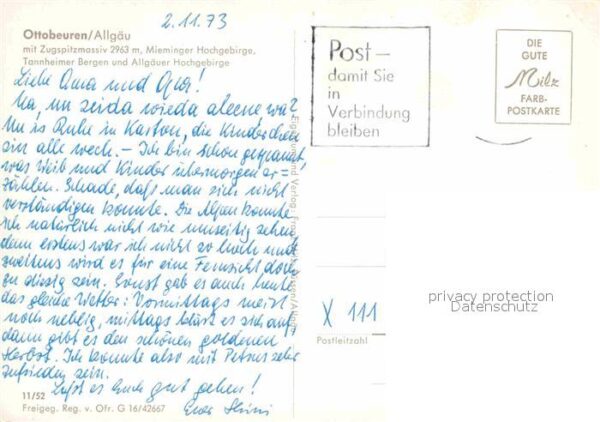 2.11.73
Ottobeuren/Allgäu
mit Zugspitzmassiv 2963 m, Mieminger Hochgebirge,
Tannheimer Bergen und Allgäuer Hochgebirge
Liebe Oma und Opa!
Na, nu seida wieda aleene wa?
Nu is Ruhe in Karton, die Kinderchen
sin alle wech. – Ich bin schon gespannt
was Weib und Kinder übermorgen er=
zählen. Schade, daß man sich nicht
verständigen konnte. Die Alpen konnte
ich natürlich nicht wie umseitig sehen
denn erstens war ich nicht so hoch und
zweitens wird es für eine Fernsicht doch
zu diesig sein. Sonst gab es auch heute
das gleiche Wetter: Vormittags meist
noch neblig, mittags klärt es sich auf,
dann gibt es den schönen goldenen
Herbst. Ich konnte also mit Petrus sehr
zufrieden sein.
Laßt es Euch gut gehen!
Euer
11/52
Freigeg. Reg. v. Ofr. G 16/42667
Post –
damit Sie
in
Verbindung
bleiben
DIE
GUTE
Milz
FARB-
POSTKARTE
X 111
Postleitzahl
privacy protection
Datenschutz